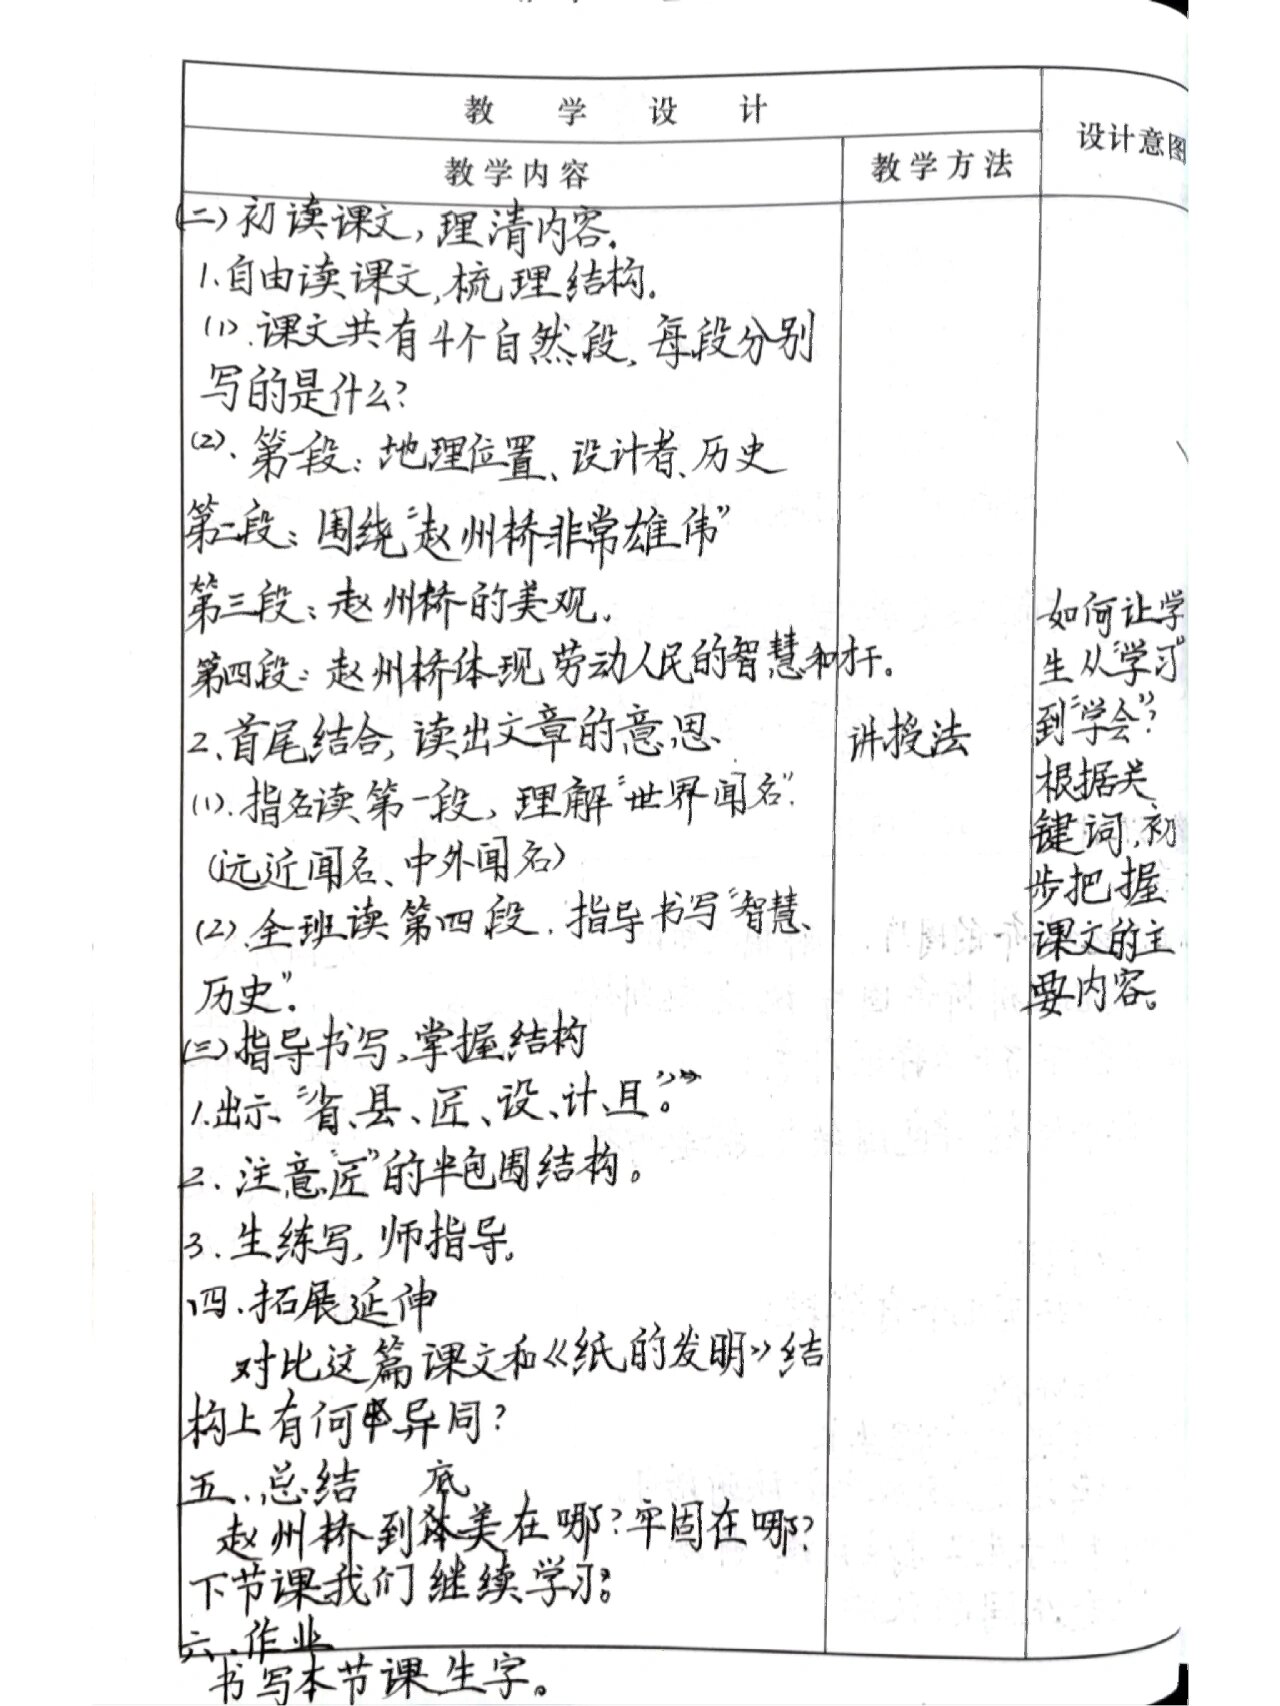 教学设计
设计意图
教学内容
教学方法
(二)初读课文,理清内容.
1.自由读课文,梳理结构.
(1).课文共有4个自然段,每段分别
写的是什么?
(2)、第一段:地理位置、设计者、历史
第二段:围绕“赵州桥非常雄伟”
第三段:赵州桥的美观.
第四段:赵州桥体现劳动人民的智慧和才干。
2.首尾结合,读出文章的意思、
(1).指名读第一段,理解“世界闻名”.
(远近闻名、中外闻名)
(2).全班读第四段.指导书写“智慧、
历史”.
(三)指导书写,掌握结构
1.出示“省、县、匠、设、计、且”。
2.注意“匠”的半包围结构。
3.生练写,师指导.
四.拓展延伸
对比这篇课文和《纸的发明》结
构上有何异同?
五.总结
赵州桥到底美在哪?牢固在哪?
下节课我们继续学习.
六.作业
书写本节课生字。
讲授法
如何让学
生从“学习”
到“学会”?
根据关
键词,初
步把握
课文的主
要内容。